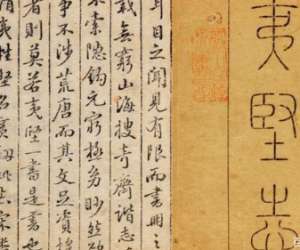 夷堅志
耳目之聞見有限而書冊之
載無窮山海搜奇齊諧志
索隱鉤元窮極眇然
事不涉荒唐而其文足資
者則莫若夷堅一書是書